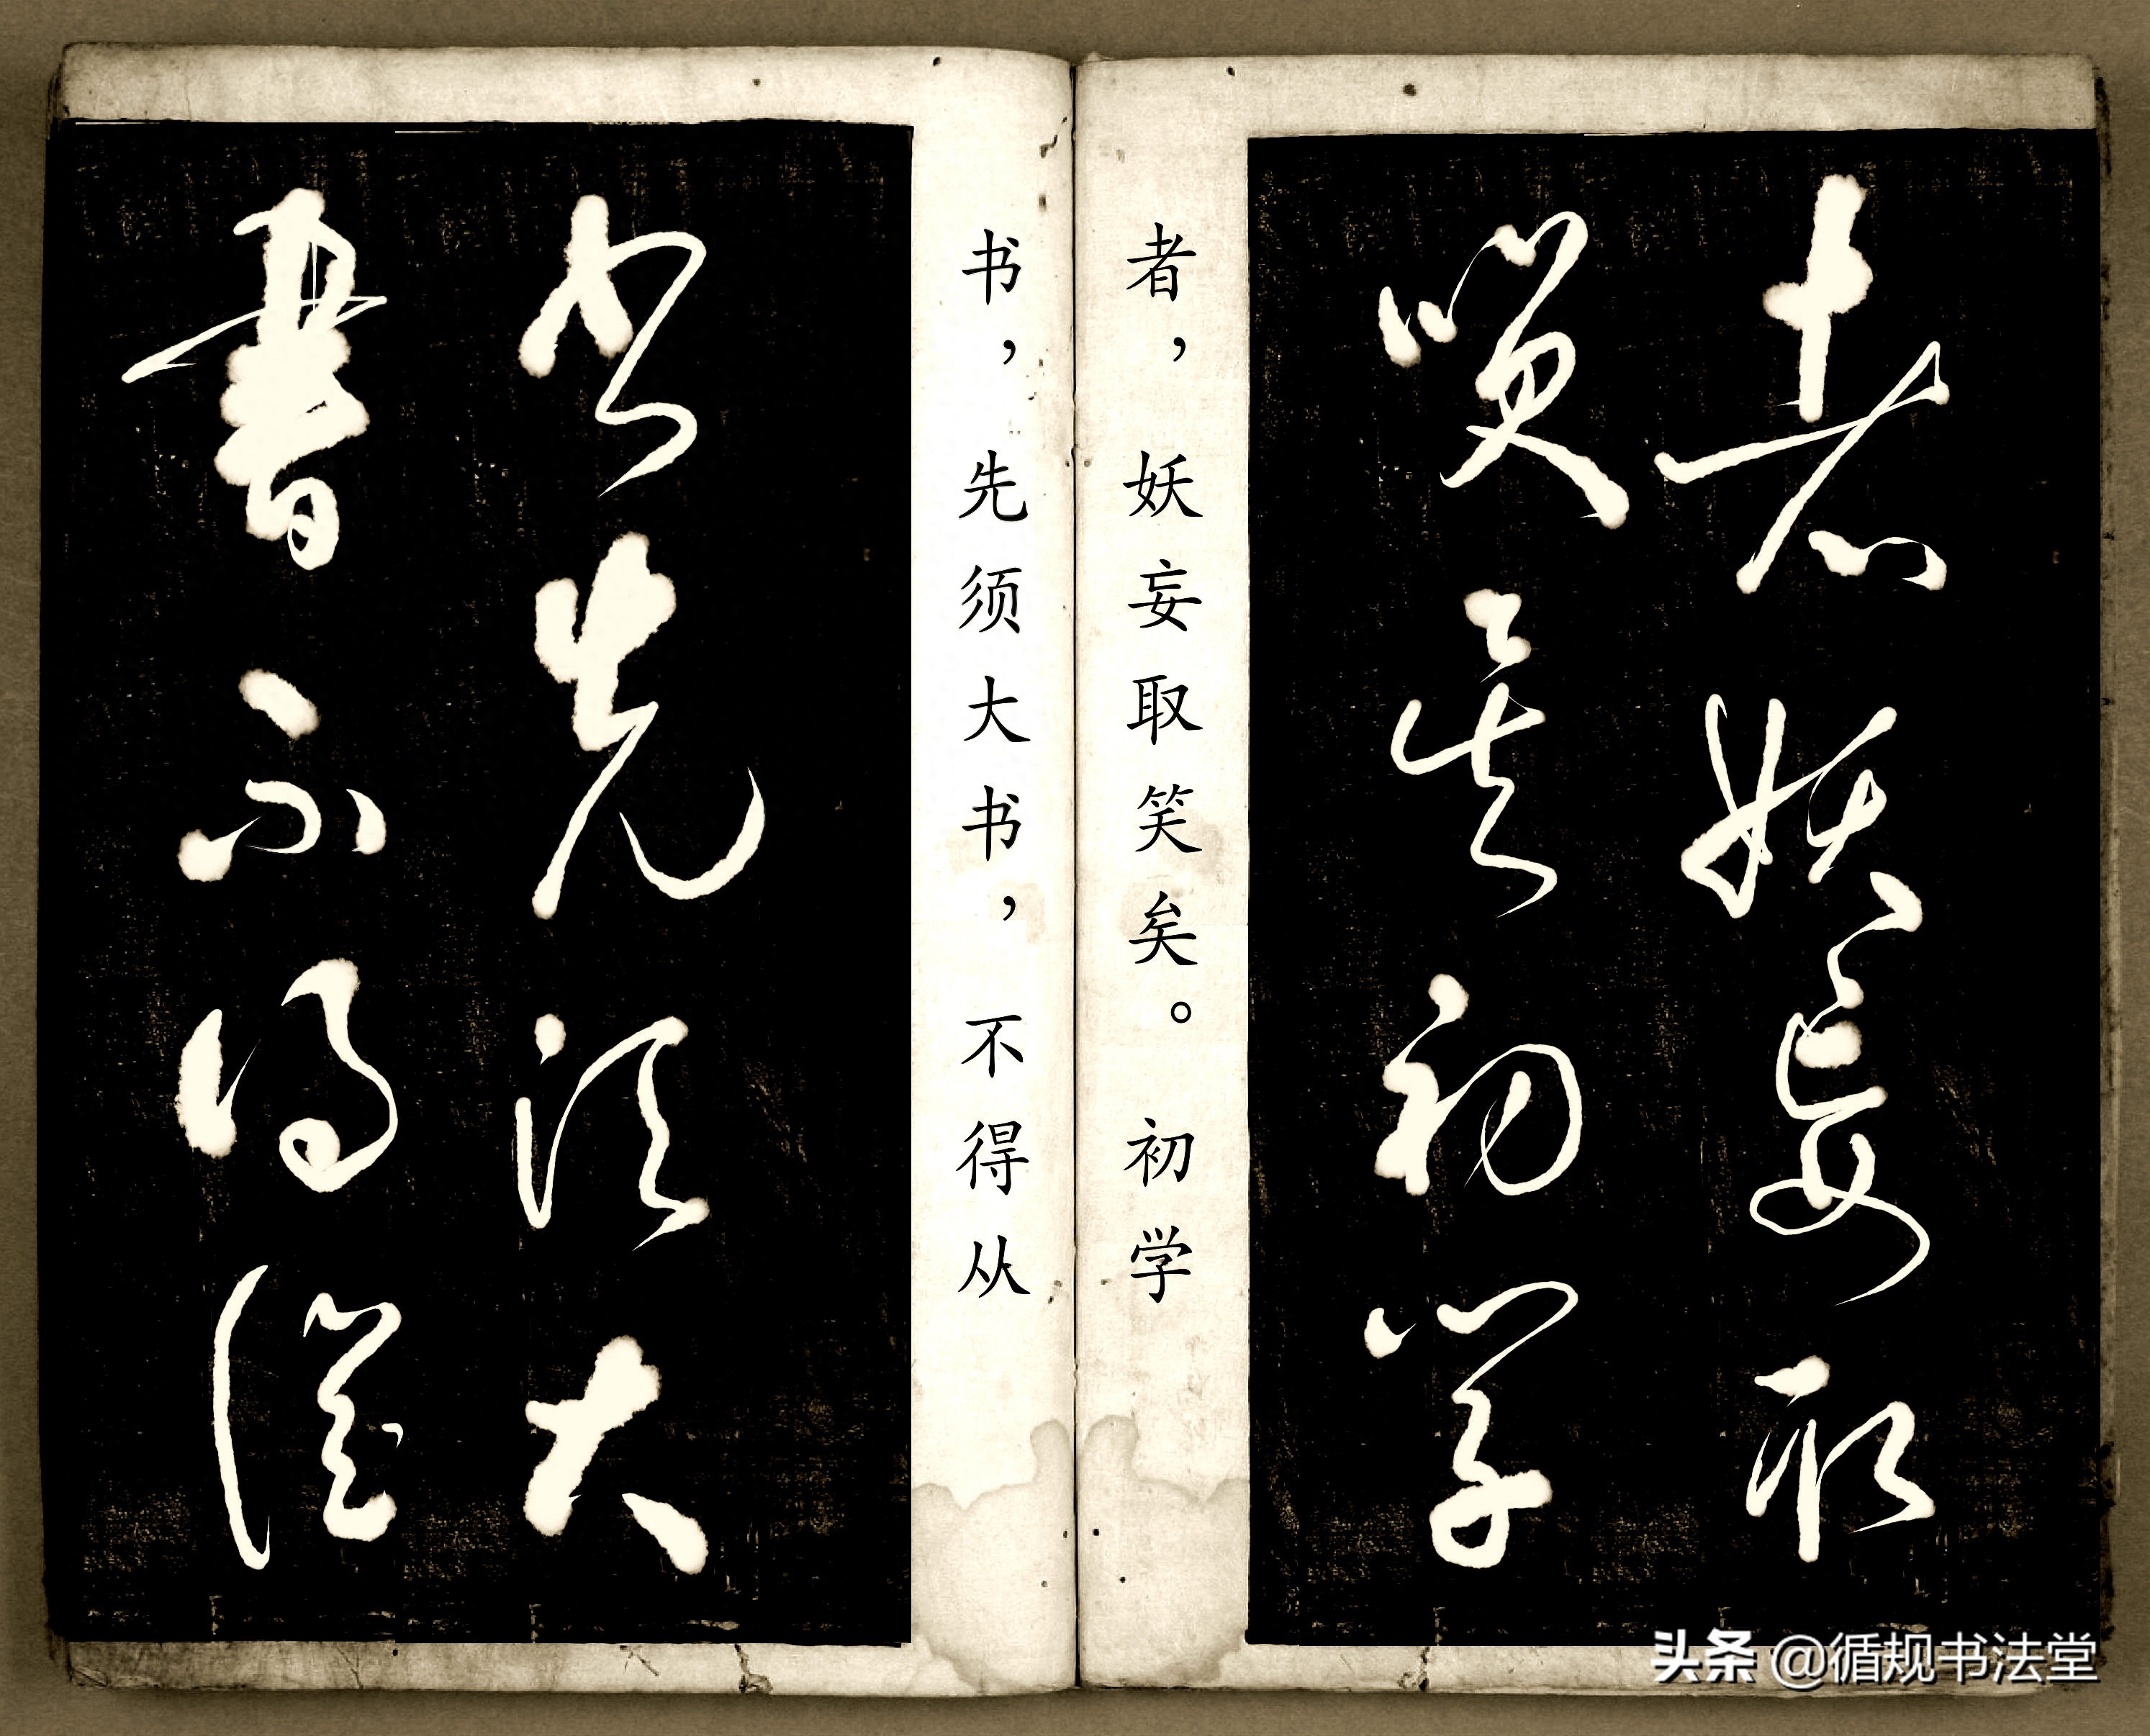 者妖妄取
笑矣初学
者，妖妄取笑矣。初学
书，先须大书，不得从
书先须大
書不得從
头条 @循规书法堂